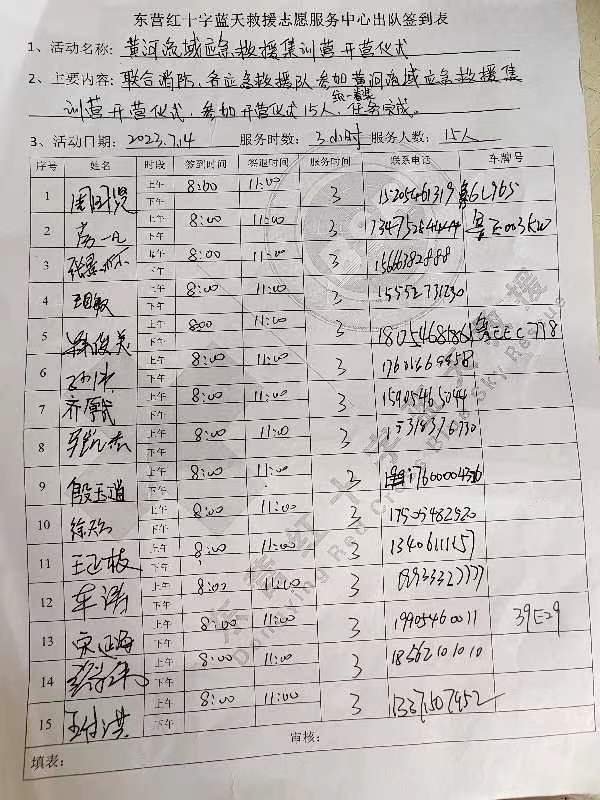 东营红十字蓝天救援志愿服务中心出队签到表
1、活动名称: 黄河流域应急救援集训营开营仪式
2、主要内容: 联合消防、各应急救援队参加黄河流域应急救援集
统一着装
训营开营仪式，参加开营仪式15人，任务完成。
3、活动日期: 2023.7.14 服务时数: 3小时 服务人数: 15人
序号 姓名 时段 签到时间 签退时间 服务时间 联系电话 车牌号
1 上午 8:00 11:00 3 15205461319
下午
2 上午 8:00 11:00 3
下午
3 上午 8:00 11:00 3 15666382888
下午
4 上午 8:00 11:00 3 15552731230
下午
5 上午 8:00 11:00 3 18054681861
下午
6 上午 8:00 11:00 3 17601669958
下午
7 齐 上午 8:00 11:00 3 15905465044
下午
8 上午 8:00 11:00 3
下午
9 殷玉道 上午 8:00 11:00 3
下午
10 徐 上午 8:00 11:00 3 17505482520
下午
11 王正枝 上午 8:00 11:00 3
下午
12 车涛 上午 8:00 11:00 3
下午
13 宋延海 上午 8:00 11:00 3 19905460011 39E29
下午
14 上午 8:00 11:00 3 18562101010
下午
15 王付洪 上午 8:00 11:00 3 13371507952
下午
填表: 审核:
东营红十字蓝天救援
Dongying Red Cross Blue Sky Rescue